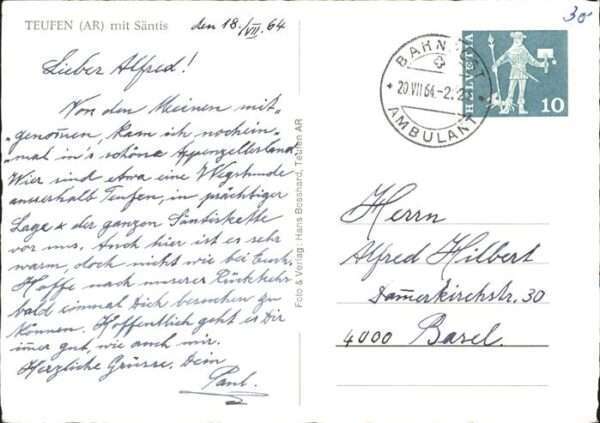 TEUFEN (AR) mit Säntis
den 18./VII. 64
Lieber Alfred!
Von den Meinen mit-
-genom̅en, kam ich nochein-
-mal in's schöne Appenzellerland
Wier sind etwa eine Wegstunde
ausserhalb Teufen, in prächtiger
Lage & der ganzen Säntiskette
vor uns. Auch hier ist es sehr
warm, doch nicht wie bei Euch.
Hoffe nach unserer Rückkehr
bald einmal Dich besuchen zu
können. Hoffentlich geht es Dir
im̅er gut, wie auch mir.
Herzliche Grüsse, Dein
Paul.
Foto & Verlag: Hans Bosshard, Teufen AR
30
BAHNPOST
20 VII 64-2
AMBULANT
HELVETIA
10
Herrn
Alfred Hilbert
Dam̅erkirchstr. 30
4000 Basel.